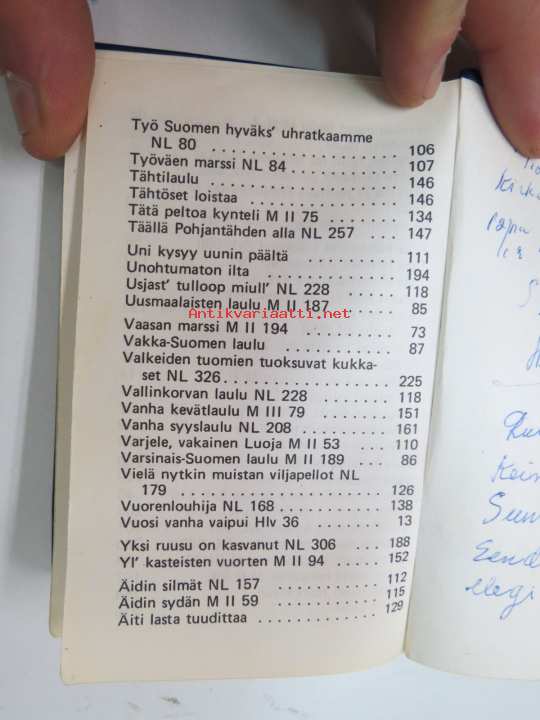 Työ Suomen hyväks' uhratkaamme
NL 80 . . . . . . . . . . . . . . . . . 106
Työväen marssi NL 84 . . . . . . . . . . 107
Tähtilaulu . . . . . . . . . . . . . . . . . 146
Tähtöset loistaa . . . . . . . . . . . . . . 146
Tätä peltoa kynteli M II 75 . . . . . . . 134
Täällä Pohjantähden alla NL 257 . . . . 147
Uni kysyy uunin päältä . . . . . . . . . 111
Unohtumaton ilta . . . . . . . . . . . . . 194
Usjast' tulloop miull' NL 228 . . . . . . 118
Uusmaalaisten laulu M II 187 . . . . . . 85
Antikvariaatti.net
Vaasan marssi M II 194 . . . . . . . . . . 73
Vakka-Suomen laulu . . . . . . . . . . . . 87
Valkeiden tuomien tuoksuvat kukka-
set NL 326 . . . . . . . . . . . . . . . . 225
Vallinkorvan laulu NL 228 . . . . . . . . 118
Vanha kevätlaulu M III 79 . . . . . . . . 151
Vanha syyslaulu NL 208 . . . . . . . . . 161
Varjele, vakainen Luoja M II 53 . . . . 110
Varsinais-Suomen laulu M II 189 . . . . 86
Vielä nytkin muistan viljapellot NL
179 . . . . . . . . . . . . . . . . . . . 126
Vuorenlouhija NL 168 . . . . . . . . . . . 138
Vuosi vanha vaipui Hlv 36 . . . . . . . . 13
Yksi ruusu on kasvanut NL 306 . . . . . 188
Yl' kasteisten vuorten M II 94 . . . . . . 152
Äidin silmät NL 157 . . . . . . . . . . . 112
Äidin sydän M II 59 . . . . . . . . . . . 115
Äiti lasta tuudittaa . . . . . . . . . . . . 129